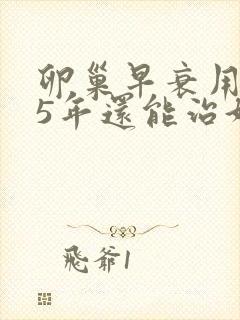 卵巢早衰用
5年還能治
飛爺1